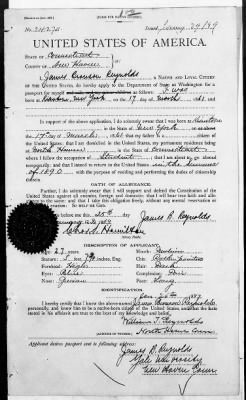 No. 24274 Issued January 29/89
UNITED STATES OF AMERICA.
STATE OF Connecticut
COUNTY OF New Haven
I, James Bronson Reynolds, A NATIVE AND LOYAL CITIZEN
OF THE UNITED STATES, do hereby apply to the Department of State at Washington for a
passport for myself
New York on the 17 day of March, 1861
In support of the above application, I do solemnly swear that I was born at
in the State of New York on
17 day of March; that my father is a
citizen of the United States; that I am domiciled in the United States, my permanent residence
being at North Haven in the State of Connecticut
where I follow the occupation of Student; that I am about to go abroad
temporarily; and that I intend to return to the United States in the summer
of 1890 with the purpose of residing and performing the duties of citizenship
therein.
OATH OF ALLEGIANCE.
Further, I do solemnly swear that I will support and defend the Constitution of the
United States against all enemies, foreign and domestic; that I will bear true faith and alle-
giance to the same; and that I take this obligation freely, without any mental reservation or
purpose of evasion: So help me God.
Sworn to before me this 25th day
James B. Reynolds
Chas. L. Hamilton
Notary Public
DESCRIPTION OF APPLICANT.
Age: 27 years
Mouth: Medium
Stature: 5 feet 7¾ inches, Eng.
Chin:
Forehead: High
Hair: Dark
Eyes: Blue
Complexion: Fair
Nose: Grecian
Face: Long
IDENTIFICATION.
Jan 25th 1889
I hereby certify that I know the above-named James Bronson Reynolds
personally, and know him to be the native-born citizen of the United States and that the facts
stated in his affidavit are true to the best of my knowledge and belief.
William T. Reynolds
[ADDRESS OF WITNESS] North Haven Conn
Applicant desires passport sent to following address:
James B. Reynolds
Yale University
New Haven Conn